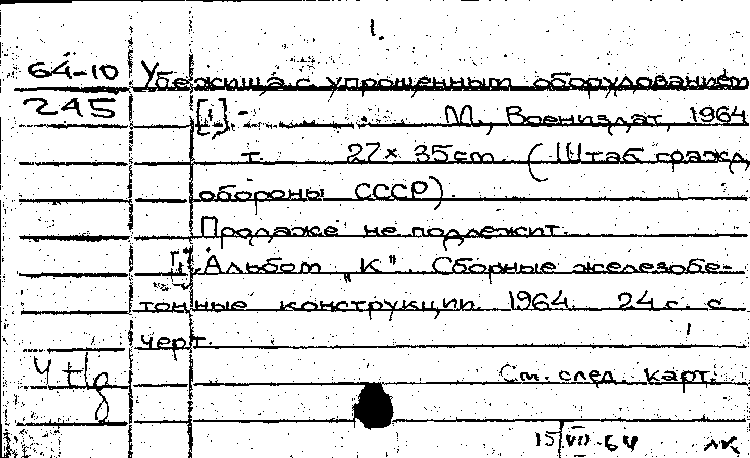 1.
64-10 Убежища с упрощенным оборудованием
245 [1] - М., Воениздат, 1964
т. 27×35cm. (Штаб гражд.
обороны СССР).
Продаже не подлежит.
[1] Альбом „К". Сборные железобе-
тонные конструкции. 1964. 24 с. с
черт. 1
См. след. карт.
15/VII-64 лк